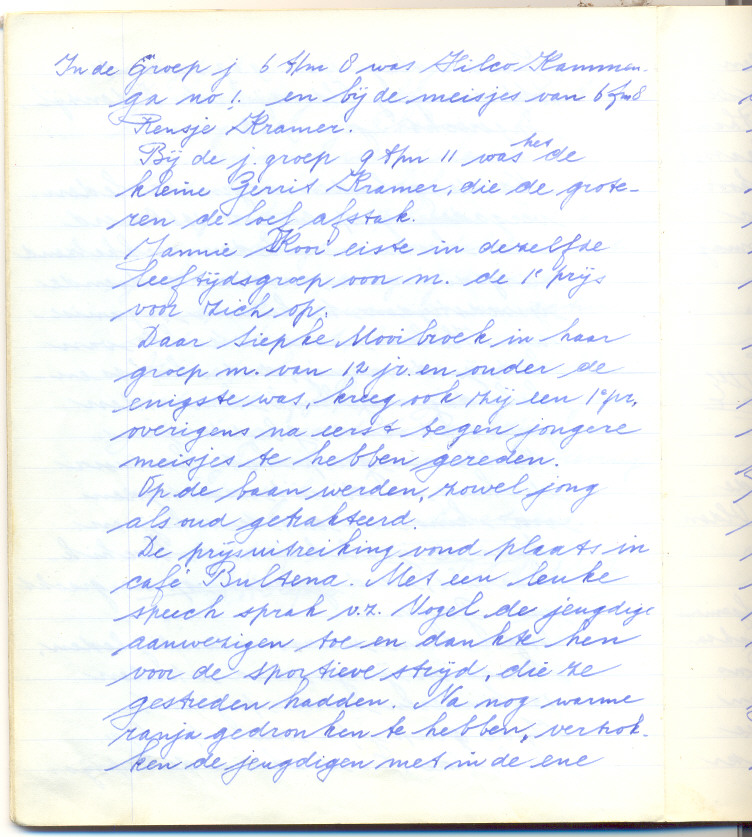 In de Groep j 6 t/m 8 was Hilco Kammen-
ga no 1. en bij de meisjes van 6 t/m 8
Rensje Kramer.
Bij de j. groep 9 t/m 11 was het de
kleine Gerrit Kramer, die de grote-
ren de loef afstak.
Mannie Kooi eiste in dezelfde
leeftijdsgroep voor m. de 1e prijs
voor zich op.
Daar Siepke Mooibroek in haar
groep m. van 12 jr. en ouder de
enigste was, kreeg ook zij een 1e pr,
overigens na eerst tegen jongere
meisjes te hebben gereden.
Op de baan werden, zowel jong
als oud getrakteerd.
De prijsuitreiking vond plaats in
café Bultena. Met een leuke
speech sprak v.z. Vogel de jeugdige
aanwezigen toe en dankte hen
voor de sportieve strijd, die ze
gestreden hadden. Na nog warme
ranja gedronken te hebben, vertrok-
ken de jeugdigen met in de ene